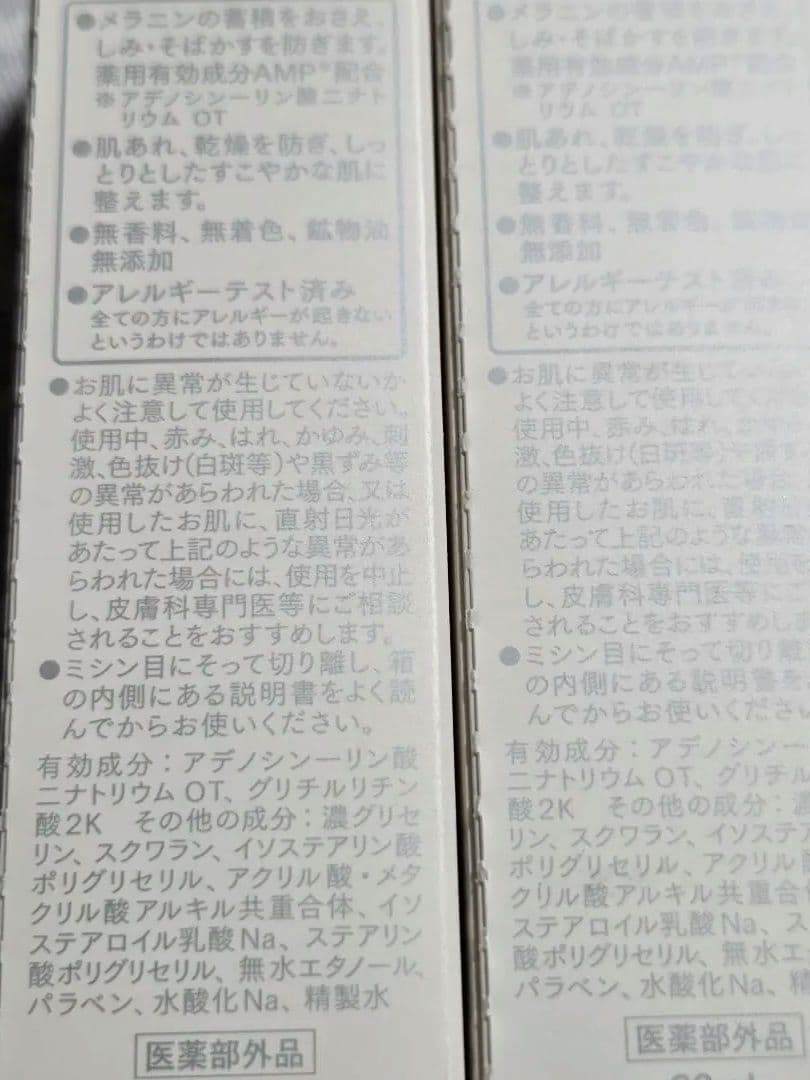 ●メラニンの蓄積をおさえ、
しみ・そばかすを防ぎます。
薬用有効成分AMP※配合
※アデノシン一リン酸ニナト
リウム OT
●肌あれ、乾燥を防ぎ、しっ
とりとしたすこやかな肌に
整えます。
●無香料、無着色、鉱物油
無添加
●アレルギーテスト済み
全ての方にアレルギーが起きない
というわけではありません。
●お肌に異常が生じていないか
よく注意して使用してください。
使用中、赤み、はれ、かゆみ、刺
激、色抜け(白斑等)や黒ずみ等
の異常があらわれた場合、又は
使用したお肌に、直射日光が
あたって上記のような異常があ
らわれた場合には、使用を中止
し、皮膚科専門医等にご相談
されることをおすすめします。
●ミシン目にそって切り離し、箱
の内側にある説明書をよく読
んでからお使いください。
有効成分：アデノシン一リン酸
ニナトリウム OT、グリチルリチン
酸2K その他の成分：濃グリセ
リン、スクワラン、イソステアリン酸
ポリグリセリル、アクリル酸・メタ
クリル酸アルキル共重合体、イソ
ステアロイル乳酸Na、ステアリン
酸ポリグリセリル、無水エタノール、
パラベン、水酸化Na、精製水
医薬部外品
●メラニンの蓄積をおさ
しみ・そばかすを防ぎます
薬用有効成分AMP※配合
※アデノシン一リン酸
リウム OT
●肌あれ、乾燥を防ぎ、
とりとしたすこやかな肌
整えます。
●無香料、無着色、
無添加
●アレルギーテスト済み
全ての方にアレルギーが起きな
というわけではありません。
●お肌に異常が生じて
よく注意して使用してくだ
使用中、赤み、はれ、かゆ
激、色抜け(白斑等)や黒ず
の異常があらわれた場
使用したお肌に、直射
あたって上記のような異常
らわれた場合には、使用を
し、皮膚科専門医等に
されることをおすすめしま
●ミシン目にそって切り離
の内側にある説明書を
んでからお使いくださ
有効成分：アデノシン一
ニナトリウム OT、グリチル
酸2K その他の成分：濃
リン、スクワラン、イソステ
ポリグリセリル、アクリル
クリル酸アルキル共重合
ステアロイル乳酸Na、ス
酸ポリグリセリル、無水エ
パラベン、水酸化Na、精
医薬部外品